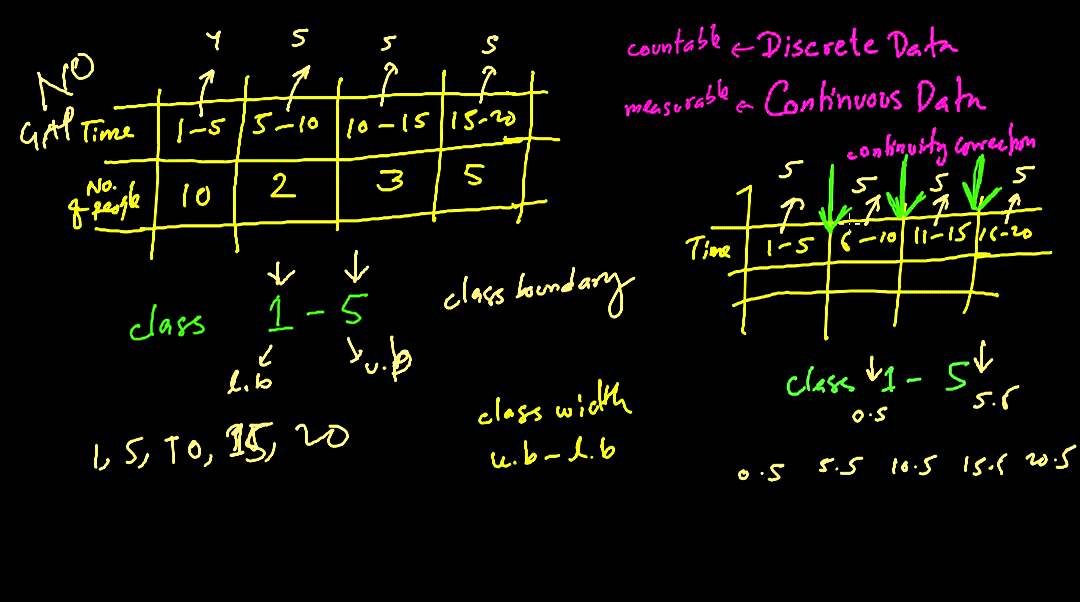 4 5 5 5
NO
GAP
Time 1-5 5-10 10-15 15-20
No. of people 10 2 3 5
class 1 - 5
l.b u.b
class boundary
1, 5, 10, 15, 20
class width
u.b - l.b
countable ← Discrete Data
measurable ← Continuous Data
continuity correction
5 5 5 5
Time 1-5 6-10 11-15 16-20
class 1 - 5
0.5 5.5
0.5 5.5 10.5 15.5 20.5